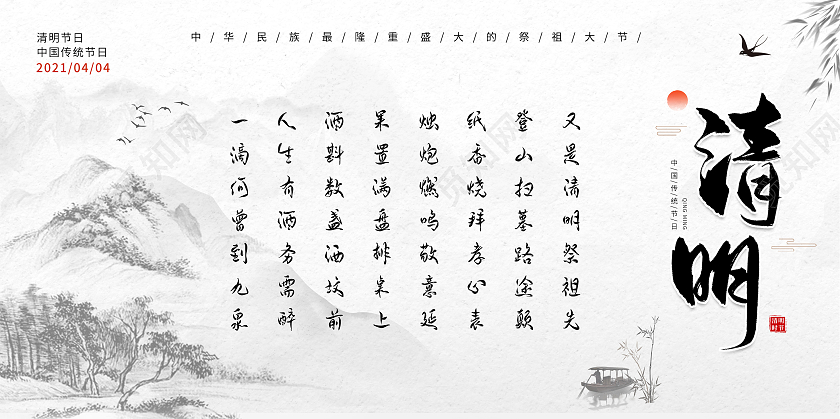 清明节日
中国传统节日
2021/04/04
中/华/民/族/最/隆/重/盛/大/的/祭/祖/大/节/
清明
中/国/传/统/节/日
QING MING
清明时节
又是清明祭祖先
登山扫墓路途颠
纸香烧拜孝心表
烛炮燃鸣敬意延
果置满盘排桌上
洒斟数盏洒坟前
人生有洒务需醉
一滴何曾到九泉